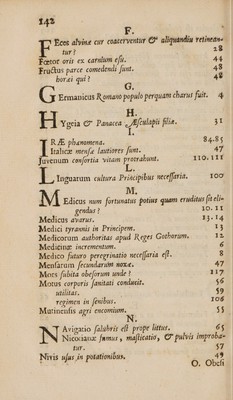 142
F.
Feces alvinæ cur coacerventur & aliquandiu retinean-
tur? 28
Fœtor oris ex carnium esu. 44
Fructus parce comedendi sunt. 48
horæi qui? 48
G.
Germanicus Romano populo perquam charus fuit. 4
H.
Hygeia & Panacea Æsculapii filiæ. 31
I.
IRÆ phænomena. 84.85
Italicæ mensæ lautiores sunt. 47
Juvenum consortia vitam protrahunt. 110.111
L.
Linguarum cultura Principibus necessaria. 100
M.
Medicus num fortunatus potius quam eruditus sit eli-
gendus? 10.11
Medicus avarus. 13.14
Medici tyrannis in Principem. 13
Medicorum authoritas apud Reges Gothorum. 12
Medicinæ incrementum. 6
Medico futuro peregrinatio necessaria est. 8
Mensarum secundarum noxæ. 47
Mors subita obesorum unde? 117
Motus corporis sanitati conducit. 56
utilitas. 59
regimen in senibus. 106
Mutinensis agri encomium. 55
N.
Navigatio salubris est prope littus. 65
Nicotianæ fumus, masticatio, & pulvis improba-
tur. 57
Nivis usus in potationibus. 49
O. Obesi